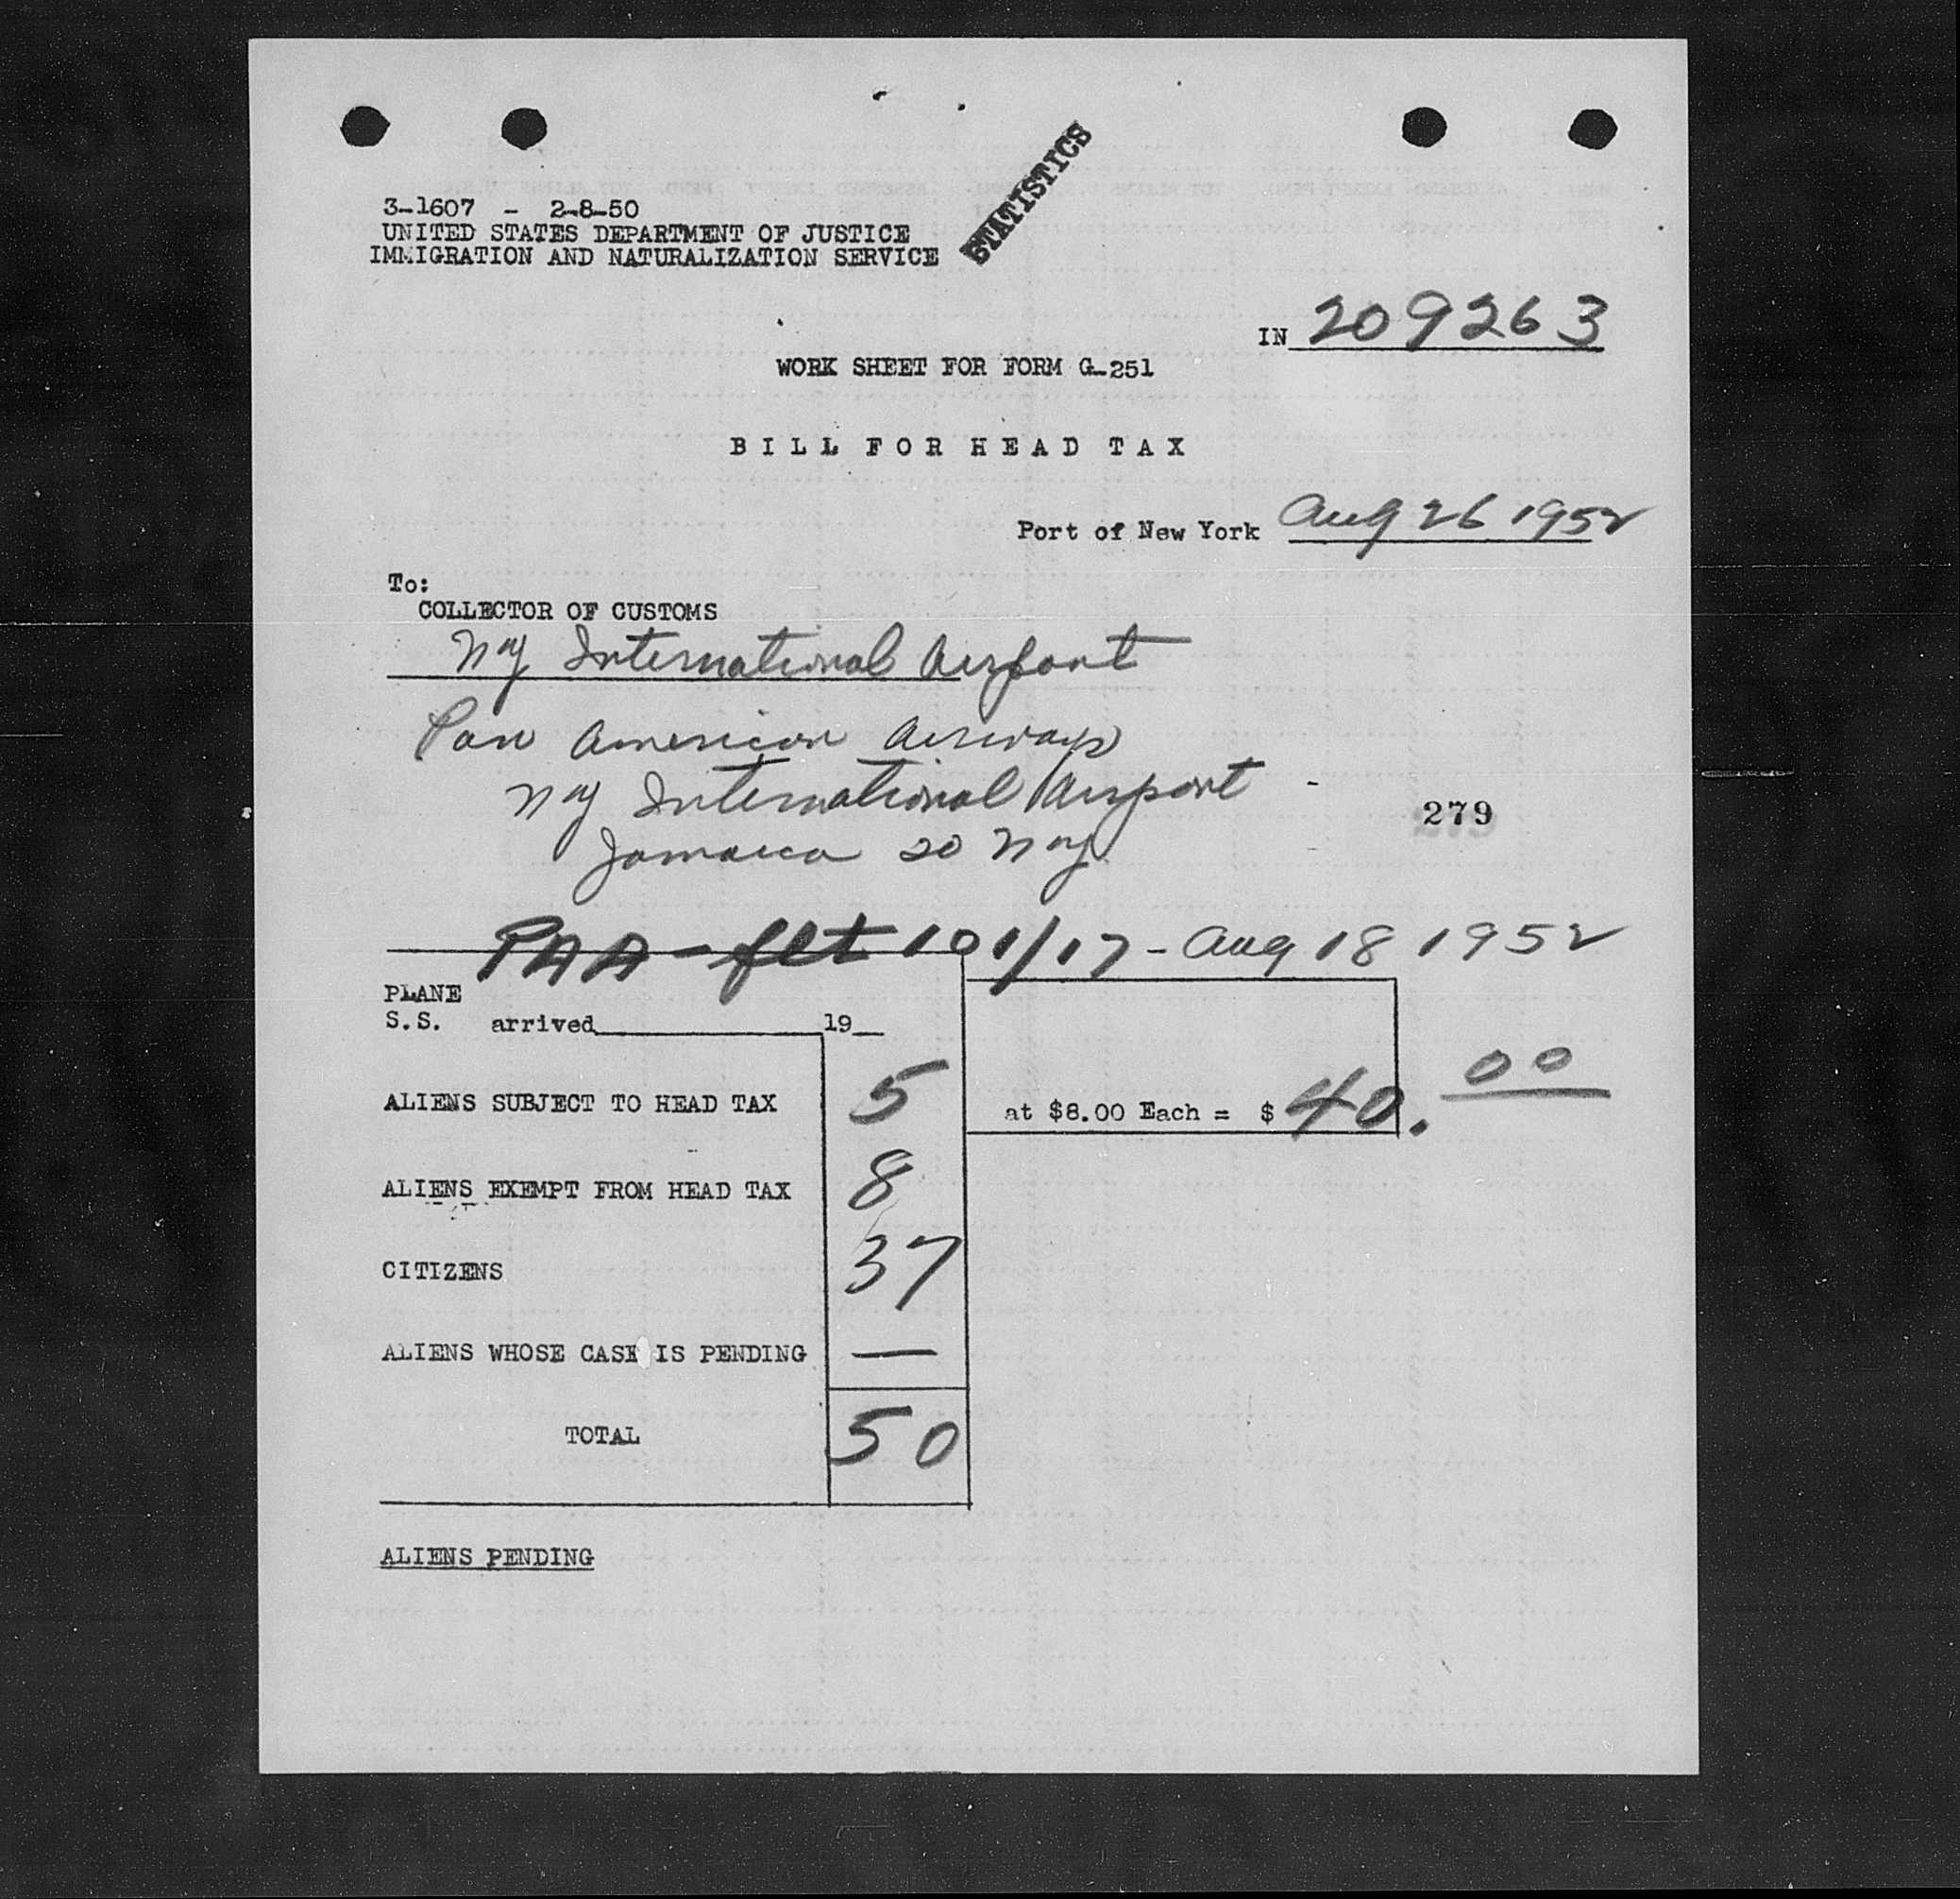 STATISTICS
3-1607 - 2-8-50
UNITED STATES DEPARTMENT OF JUSTICE
IMMIGRATION AND NATURALIZATION SERVICE
IN 209263
WORK SHEET FOR FORM G-251
BILL FOR HEAD TAX
Port of New York Aug 26 1952
To:
COLLECTOR OF CUSTOMS
NY International Airport
Pan American Airways
NY International Airport
279
Jamaica 20 NY
PAA - flt 101/17 - Aug 18 1952
PLANE
S.S. arrived 19
ALIENS SUBJECT TO HEAD TAX 5 at $8.00 Each = $ 40.00
ALIENS EXEMPT FROM HEAD TAX 8
CITIZENS 37
ALIENS WHOSE CASE IS PENDING —
TOTAL 50
ALIENS PENDING